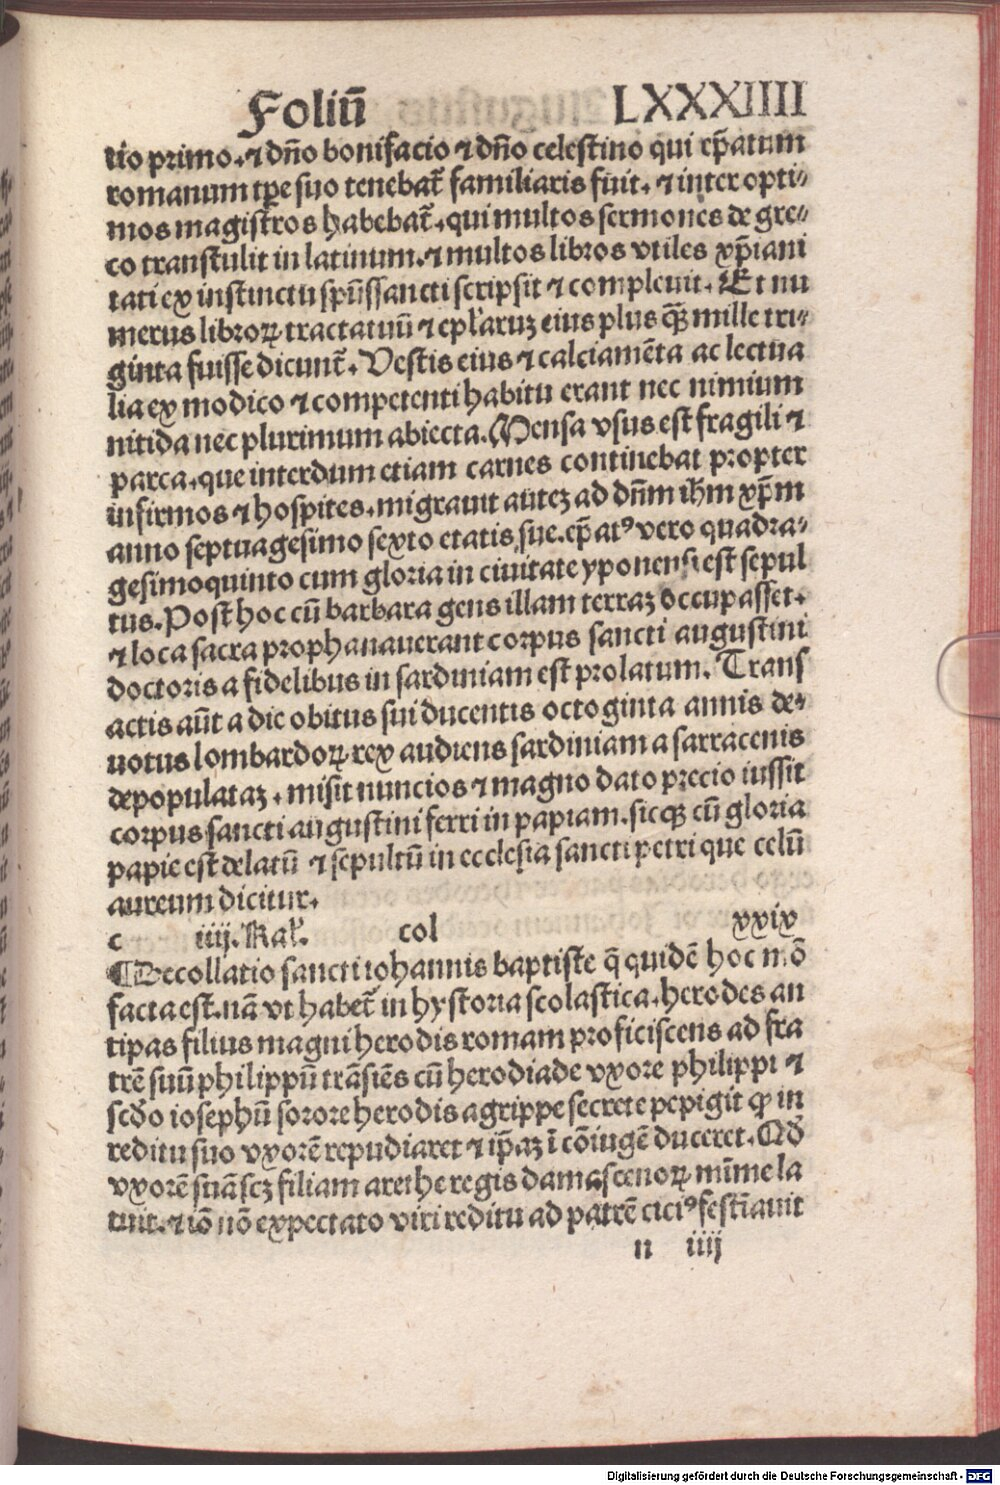 Foliū LXXXIIII
tio primo. ⁊ dño bonifacio ⁊ dño celestino qui eṗatum
romanum tꝑe suo tenebat̄ familiaris fuit. ⁊ inter opti⸗
mos magistros habebat̄. qui multos sermones de gre⸗
co transtulit in latinum. ⁊ multos libros vtiles xp̄iani
tati ex instinctu spūssancti scripsit ⁊ compleuit. Et nu
merus libroꝝ tractatuū ⁊ ep̄laruꝫ eius plus q̄ꝫ mille tri⸗
ginta fuisse dicunt̄. Vestis eius ⁊ calciamēta ac lectua
lia ex modico ⁊ competenti habitu erant nec nimium
nitida nec plurimum abiecta. Mensa vsus est fragili ⁊
parca. que interdum etiam carnes continebat propter
infirmos ⁊ hospites. migrauit auteꝫ ad dn̄m ihm xp̄m
anno septuagesimo sexto etatis sue. ep̄atꝰ vero quadra⸗
gesimoquinto cum gloria in ciuitate yponensi est sepul
tus. Post hoc cū barbara gens illam terraꝫ occupasset.
⁊ loca sacra prophanauerant corpus sancti augustini
doctoris a fidelibus in sardiniam est prolatum. Trans
actis aūt a die obitus sui ducentis octoginta annis de⸗
uotus lombardoꝝ rex audiens sardiniam a sarracenis
depopulataꝫ. misit nuncios ⁊ magno dato precio iussit
corpus sancti augustini ferri in papiam. sicqꝫ cū gloria
papie est delatū ⁊ sepultū in ecclesia sancti petri que celū
aureum dicitur.
c iiij. Kal̄. col xxix
¶ Decollatio sancti iohannis baptiste q̄ quidē hoc mō
facta est. nā vt habet̄ in hystoria scolastica. herodes an
tipas filius magni herodis romam proficiscens ad fra
trē suū philippū trāsiēs cū herodiade vxore philippi ⁊
scd̄o iosephū sorore herodis agrippe secrete pepigit ꝙ in
reditu suo vxorē repudiaret ⁊ ip̄aꝫ ī cōiugē duceret. Qd̄
vxorē suā scꝫ filiam arethe regis damascenoꝝ mīme la
tuit. ⁊ iō nō expectato viri reditu ad patrē citiꝰ festīauit
n iiij
Digitalisierung gefördert durch die Deutsche Forschungsgemeinschaft - DFG